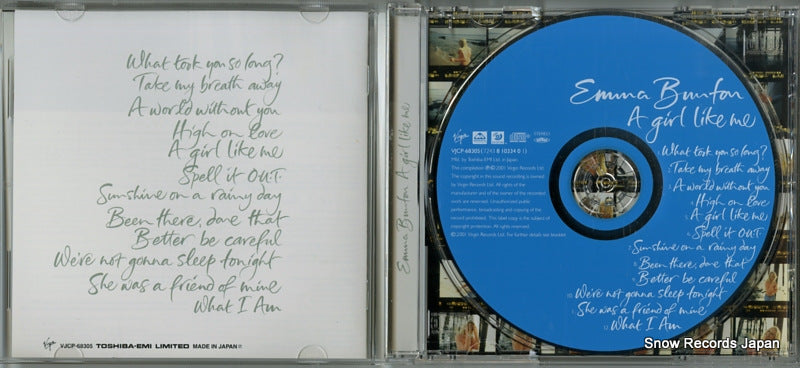 What took you so long?
Take my breath away
A world without you
High on love
A girl like me
Spell it OUT
Sunshine on a rainy day
Been there, done that
Better be careful
We're not gonna sleep tonight
She was a friend of mine
What I Am
Virgin VJCP-68305 TOSHIBA-EMI LIMITED MADE IN JAPAN
Emma Bunton A girl like me
Emma Bunton
A girl like me
Virgin
STEREO
VJCP-68305 (7243 8 10334 0 1)
Mfd. by Toshiba-EMI Ltd. in Japan.
The compilation ℗©2001 Virgin Records Ltd.
The copyright in this sound recording is owned
by Virgin Records Ltd. All rights of the
manufacturer and of the owner of the recorded
work are reserved. Unauthorized public
performance, broadcasting and copying of the
record prohibited. This label copy is the subject of
copyright protection. All rights reserved.
©2001 Virgin Records Ltd. For further details see booklet.
1. What took you so long?
2. Take my breath away
3. A world without you
4. High on love
5. A girl like me
6. Spell it OUT
7. Sunshine on a rainy day
8. Been there, done that
9. Better be careful
10. We're not gonna sleep tonight
11. She was a friend of mine
12. What I Am
Snow Records Japan